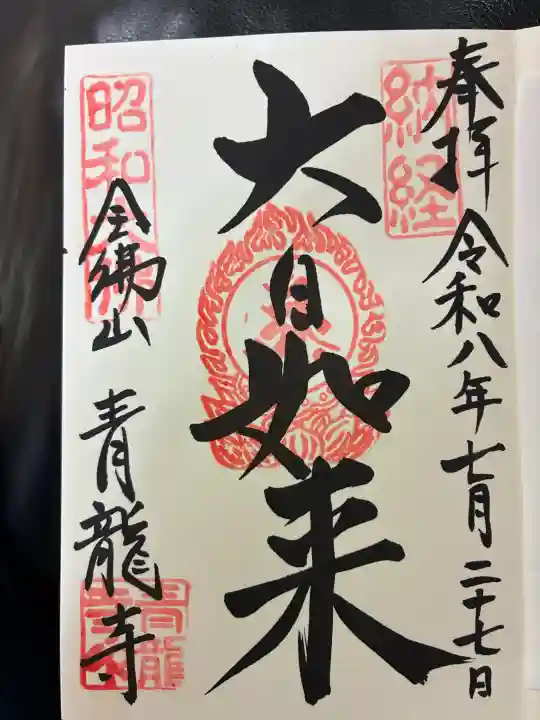 奉拝 令和八年七月二十七日
納経
大日如来
昭和大佛
全縄山 青龍寺
青龍寺印